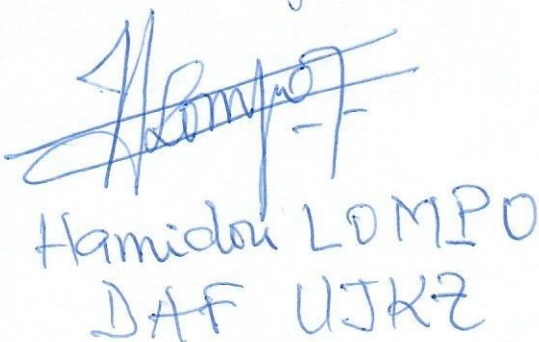 HLompo
Hamidou LOMPO
DAF UJKZ